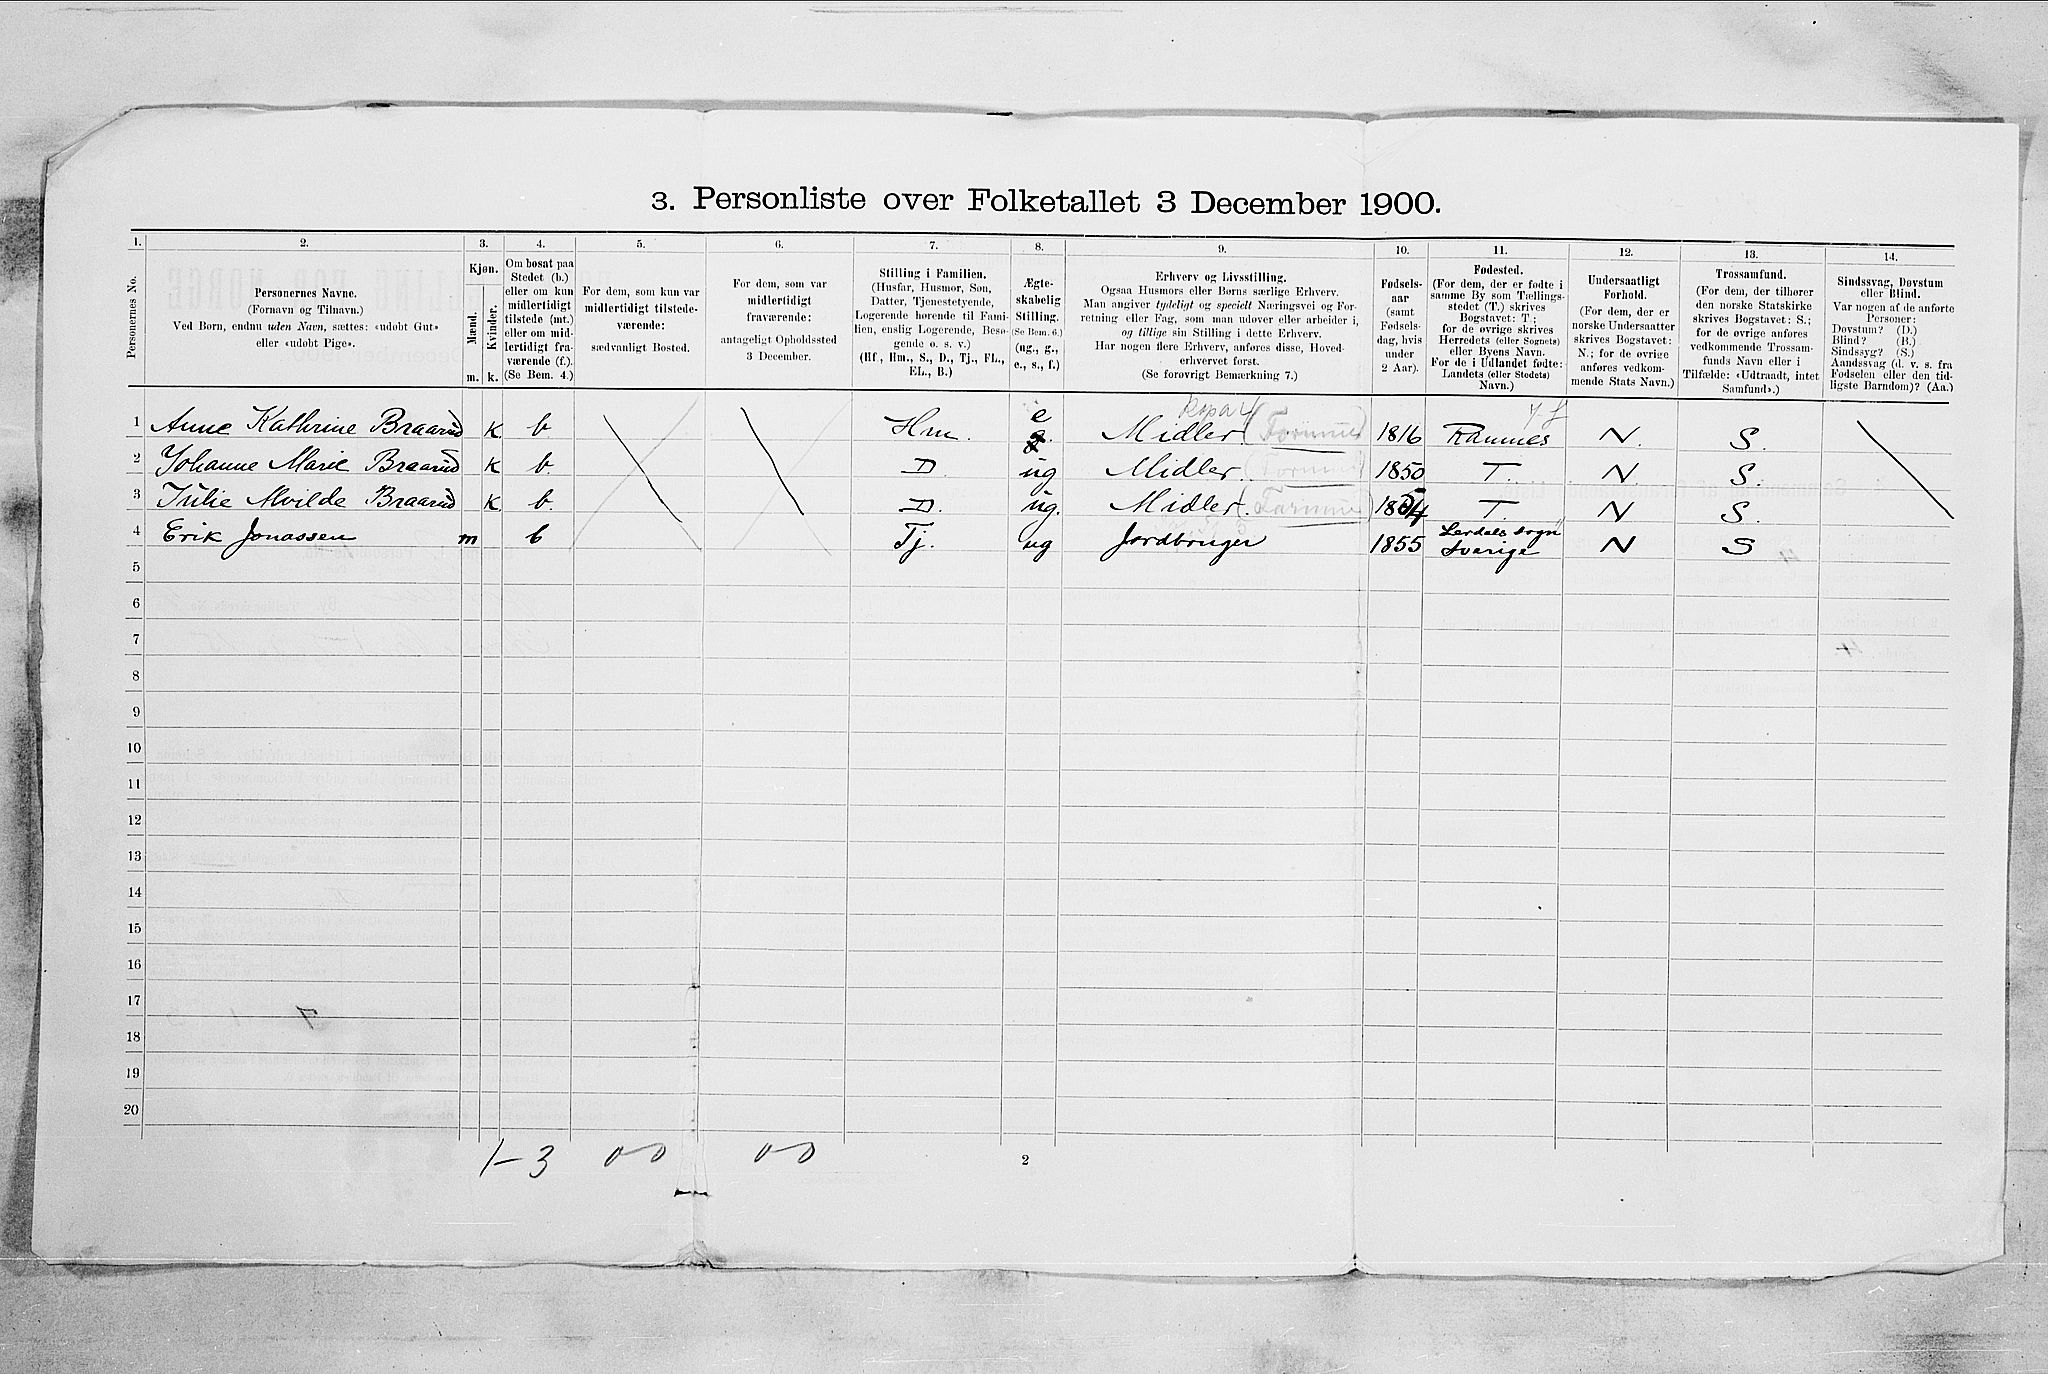 3. Personliste over Folketallet 3 December 1900.
1. 2. 3. 4. 5. 6. 7. 8. 9. 10. 11. 12. 13. 14.
Personernes No.
Personernes Navne.
(Fornavn og Tilnavn.)
Ved Børn, endnu uden Navn, sættes: «udøbt Gut»
eller «udøbt Pige».
Kjøn.
Mænd. Kvinder.
m. k.
Om bosat paa
Stedet (b.)
eller om kun
midlertidigt
tilstede (mt.)
eller om mid-
lertidigt fra-
værende (f.).
(Se Bem. 4.)
For dem, som kun var
midlertidigt tilstede-
værende:
sædvanligt Bosted.
For dem, som var
midlertidigt
fraværende:
antageligt Opholdssted
3 December.
Stilling i Familien.
(Husfar, Husmor, Søn,
Datter, Tjenestetyende,
Logerende hørende til Fami-
lien, enslig Logerende, Besø-
gende o. s. v.)
(Hf., Hm., S., D., Tj., FL.,
EL., B.)
Ægte-
skabelig
Stilling.
(Se Bem. 6.)
(ug., g.,
e., s., f.)
Erhverv og Livsstilling.
Ogsaa Husmors eller Børns særlige Erhverv.
Man angiver tydeligt og specielt Næringsvei og For-
retning eller Fag, som man udøver eller arbeider i,
og tillige sin Stilling i dette Erhverv.
Har nogen flere Erhverv, anføres disse, Hoved-
erhvervet først.
(Se forøvrigt Bemærkning 7.)
Fødsels-
aar
(samt
Fødsels-
dag, hvis
under
2 Aar).
Fødested.
(For dem, der er fødte i
samme By som Tællings-
stedet (T.) skrives
Bogstavet: T.;
for de øvrige skrives
Herredets (eller Sognets)
eller Byens Navn.
For de i Udlandet fødte:
Landets (eller Stedets)
Navn.)
Undersaatligt
Forhold.
(For dem, der er
norske Undersaatter
skrives Bogstavet:
N.; for de øvrige
anføres vedkom-
mende Stats Navn.)
Trossamfund.
(For dem, der tilhører
den norske Statskirke
skrives Bogstavet: S.;
for de øvrige anføres
vedkommende Trossam-
funds Navn eller i
Tilfælde: «Udtraadt, intet
Samfund».)
Sindssvag, Døvstum
eller Blind.
Var nogen af de anførte
Personer:
Døvstum? (D.)
Blind? (B.)
Sindssyg? (S.)
Aandssvag (d. v. s. fra
Fødselen eller den tid-
ligste Barndom)? (Aa.)
1 Anne Kathrine Braarud k b. Hm. e Midler (Formue) 1816 Ramnes N. S.
2 Johanne Marie Braarud k b. D. ug Midler. (Formue) 1850 T. N S.
3 Julie Mvilde Braarud k b. D. ug. Midler. (Formue) 1854 T. N S.
4 Erik Jonassen m b Tj. ug Jordbruger 1855 Lerdals sogn
Sverige N S
5
6
7
8
9
10
11
12
13
14
15
16
17
18
19
20
1-3 00 00
2